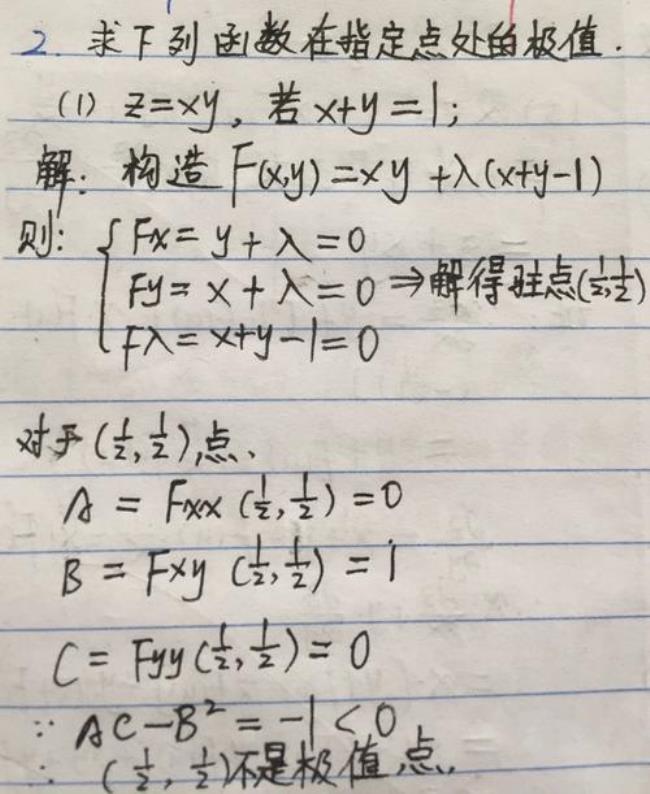 2. 求下列函数在指定点处的极值.
(1) z=xy, 若x+y=1;
解: 构造 F(x,y)=xy+λ(x+y-1)
则: { Fx=y+λ=0
Fy=x+λ=0 ⇒解得驻点(½,½)
Fλ=x+y-1=0
对于(½,½)点、
A = Fxx (½,½)=0
B = Fxy (½,½) = 1
C = Fyy(½,½)= 0
∵ AC-B² = -1<0
∴ (½,½)不是极值点.